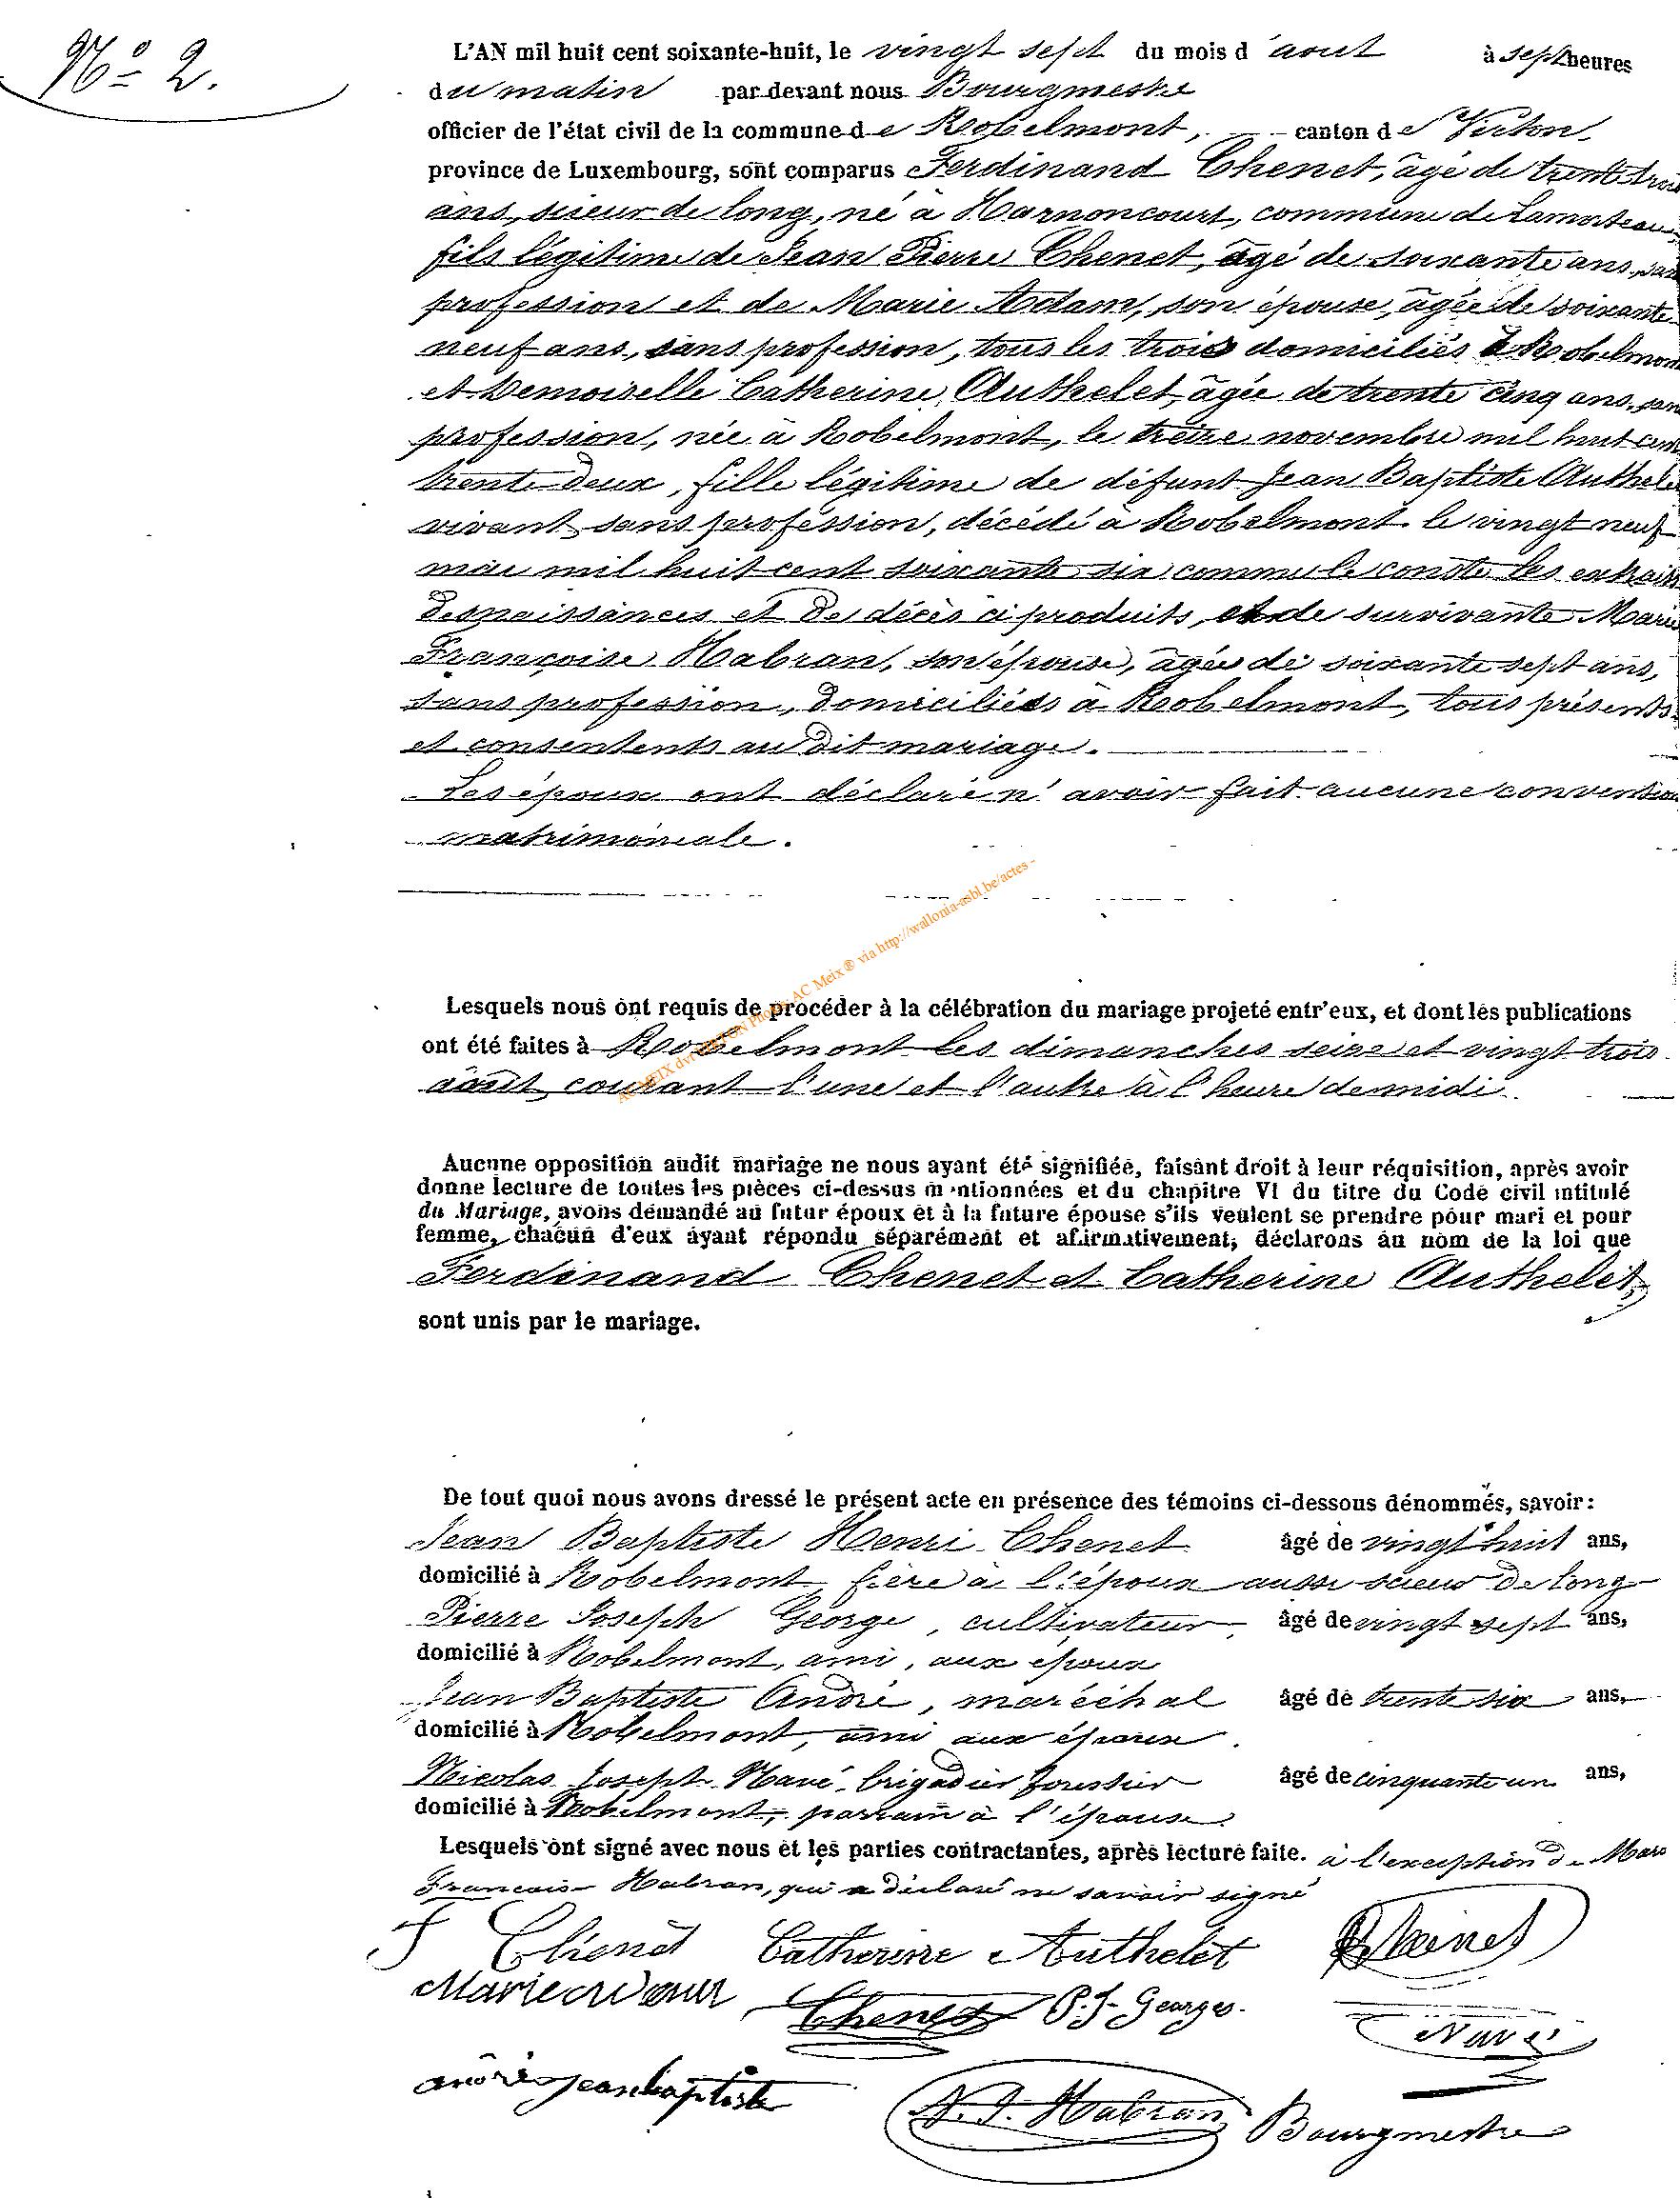 N° 2.
L'AN mil huit cent soixante-huit, le vingt sept du mois d'aout à sept heures
du matin par devant nous Bourgmestre
officier de l'état civil de la commune de Robelmont, canton de Virton,
province de Luxembourg, sont comparus Ferdinand Chenet, âgé de trente trois
ans, scieur de long, né à Harnoncourt, commune de Lamorteau
fils légitime de Jean Pierre Chenet, âgé de soixante ans, sans
profession et de Marie Adam, son épouse, âgée de soixante
neuf ans, sans profession, tous les trois domiciliés à Robelmont
et Demoiselle Catherine Authelet, âgée de trente cinq ans, sans
profession, née à Robelmont, le treize novembre mil huit cent
trente deux, fille légitime de défunt Jean Baptiste Authelet
vivant sans profession, décédé à Robelmont le vingt neuf
mai mil huit cent soixante six comme le conste les extraits
de naissances et de décès ci produits, et de survivante Marie
Françoise Habran, son épouse, âgée de soixante sept ans,
sans profession, domiciliés à Robelmont, tous présents
et consentents au dit mariage.
Les époux ont déclaré n'avoir fait aucune convention
matrimoniale.
AC MEIX dvt VIRTON Photos AC Meix ® via http://wallonia-asbl.be/actes -
Lesquels nous ont requis de procéder à la célébration du mariage projeté entr'eux, et dont les publications
ont été faites à Robelmont les dimanches seize et vingt trois
août courant l'une et l'autre à l'heure de midi.
Aucune opposition audit mariage ne nous ayant été signifiée, faisant droit à leur réquisition, après avoir
donne lecture de toutes les pièces ci-dessus mentionnées et du chapitre VI du titre du Code civil intitulé
du Mariage, avons demandé au futur époux et à la future épouse s'ils veulent se prendre pour mari et pour
femme, chacun d'eux ayant répondu séparément et afirmativement, déclarons au nom de la loi que
Ferdinand Chenet et Catherine Authelet,
sont unis par le mariage.
De tout quoi nous avons dressé le présent acte en présence des témoins ci-dessous dénommés, savoir:
Jean Baptiste Henri Chenet âgé de vingt huit ans,
domicilié à Robelmont, frère à l'époux aussi scieur de long
Pierre Joseph George, cultivateur, âgé de vingt sept ans,
domicilié à Robelmont, ami, aux époux
Jean Baptiste André, maréchal âgé de trente six ans,
domicilié à Robelmont, ami aux époux.
Nicolas Joseph Navé, brigadier forestier âgé de cinquante un ans,
domicilié à Robelmont, parrain à l'épouse.
Lesquels ont signé avec nous et les parties contractantes, après lecture faite. à l'exception de Marie
Françoise Habran, qui a déclaré ne savoir signé
F Chenet Catherine Authelet Chenet
Marie Adam Chenet P. J. Georges.
Navé
andré jean baptiste
N. J. Habran Bourgmestre